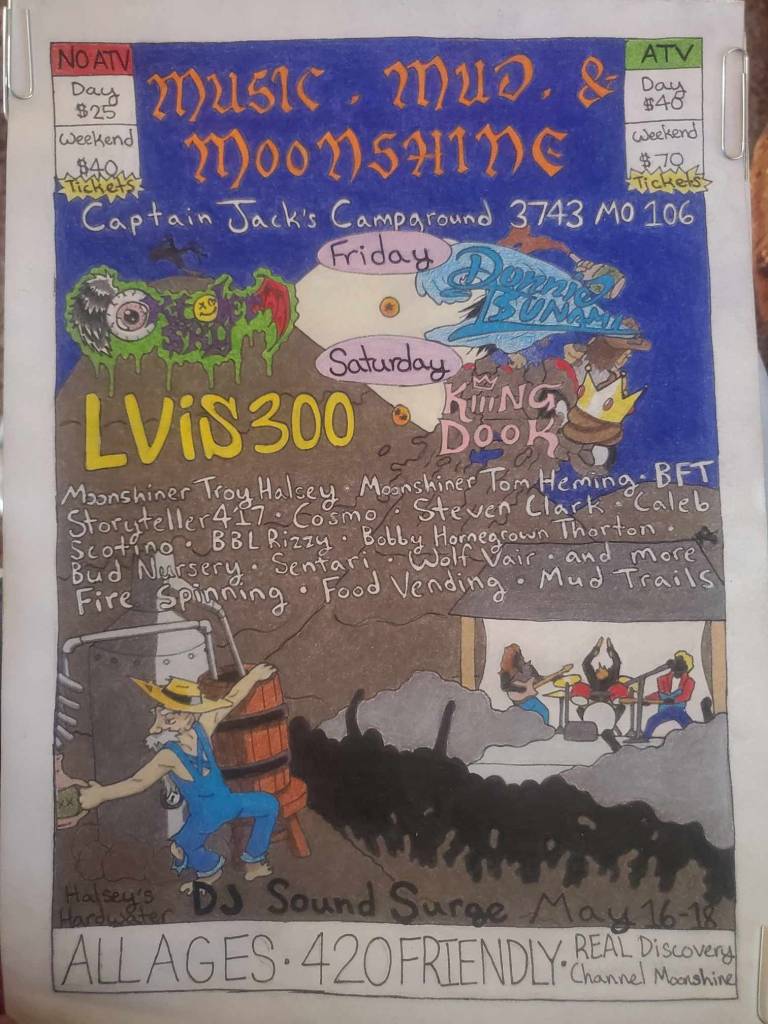 NO ATV
Day
$25
Weekend
$40
Tickets
MUSIC . MUD. &
MOONSHINE
ATV
Day
$40
Weekend
$70
Tickets
Captain Jack's Campground 3743 MO 106
Friday
Donnie
TSUNAMI
Saturday
LViS300
KiiiNG
DOOK
Moonshiner Troy Halsey · Moonshiner Tom Heming · BFT
Storyteller417 · Cosmo · Steven Clark · Caleb
Scotino · BBL Rizzy · Bobby Homegrown Thorton ·
Bud Nursery · Sentari · Wolf Vair · and more
Fire Spinning · Food Vending · Mud Trails
Halsey's
Hardwater
DJ Sound Surge May 16-18
ALL AGES · 420 FRIENDLY · REAL Discovery
Channel Moonshine